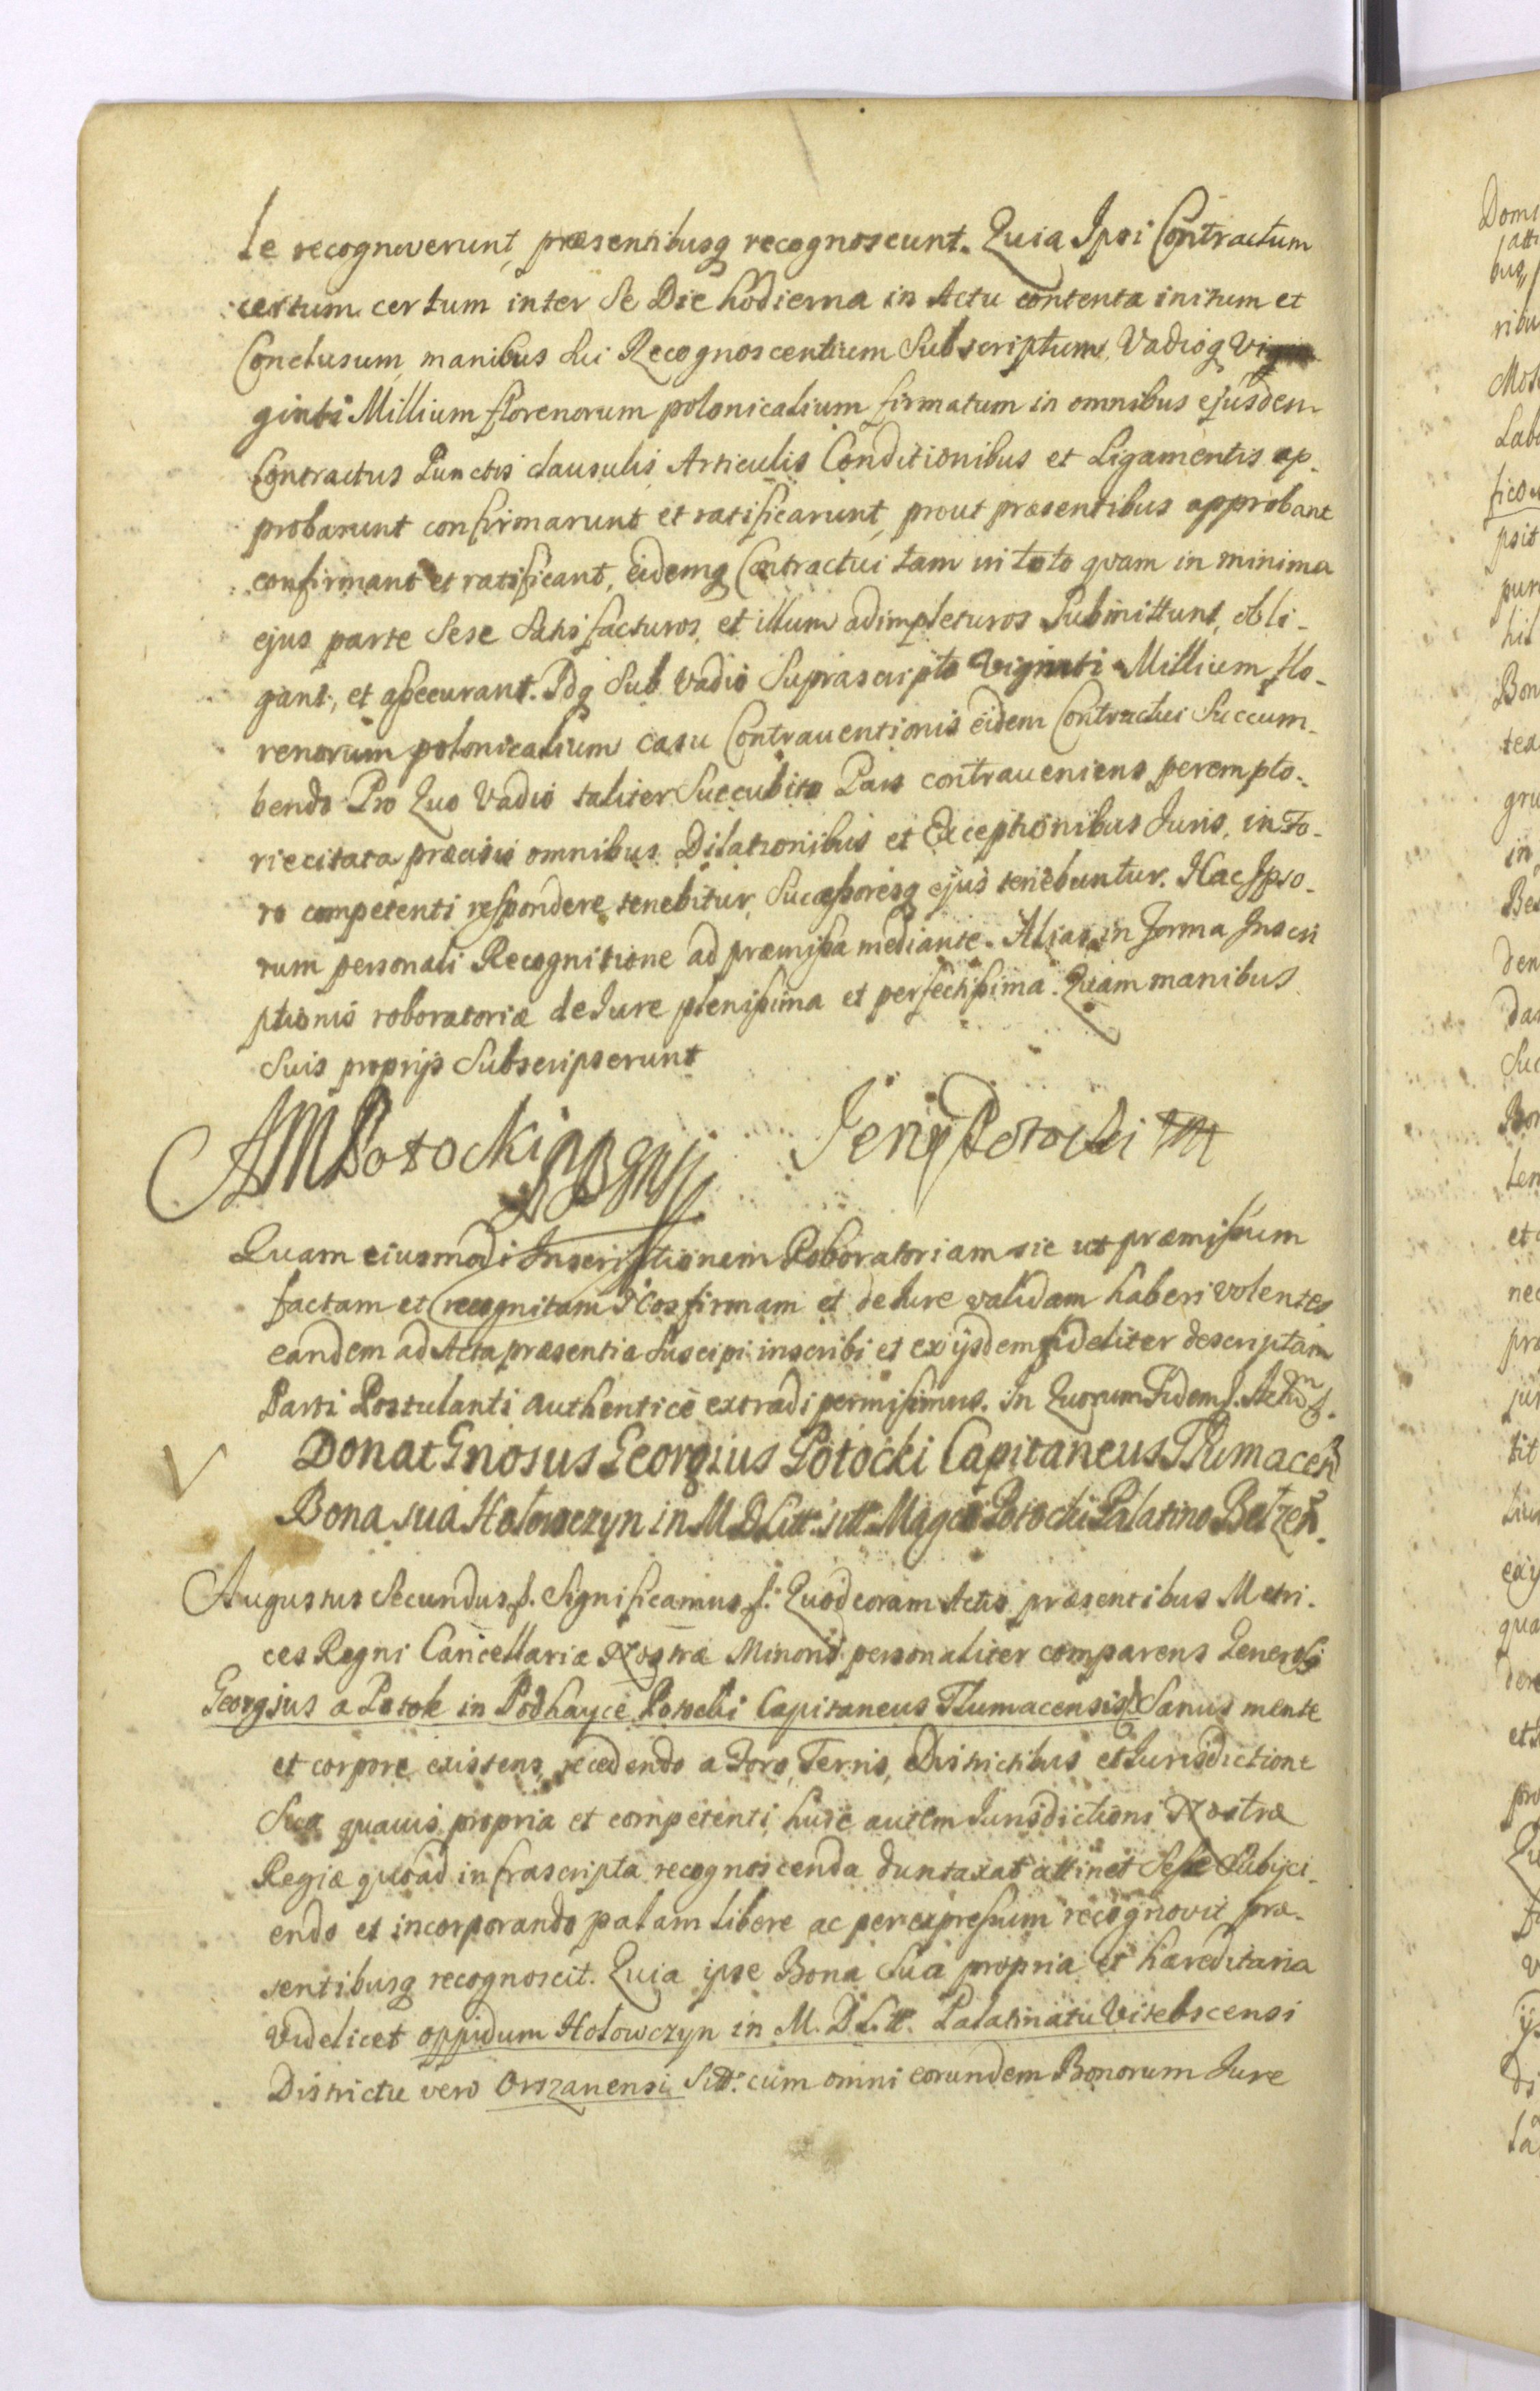 le recognoverunt, præsentibusq recognoscunt. Quia Ipsi Contractum
certum certum inter Se Die hodierna in Actu contenta initum et
Conclusum, manibus sui Recognoscentium Subscriptum, Vadioq
ginti Millium florenorum polonicalium firmatum in omnibus ejusdem
Contractus Punctis clausulis Articulis Conditionibus et Ligamentis ap-
probarunt confirmarunt et ratificarunt, prout præsentibus approbant
confirmant et ratificant, eidemq Contractui tam in toto quam in minima
ejus parte Sese Satisfacturos, et illum adimpleturos Submittunt, obli-
gant, et assecurant. Idq Sub Vadio Suprascripto Viginti Millium flo-
renorum polonicalium casu Contraventionis eidem Contractui Succum-
bendo Pro Quo Vadio taliter Succubito Pars contraveniens perempto-
rie citata præcisis omnibus Dilationibus et Exceptionibus Juris, in Fo-
ro competenti respondere tenebitur, Successoresq ejus tenebuntur. Hac Ipso-
rum personali Recognitione ad præmissa mediante. Alias in forma Inscri
ptionis roboratoriæ de Jure plenissima et perfectissima. Quam manibus
Suis proprijs Subscripserunt
Potocki Jerzy Potocki
Quam eiusmodi Inscriptionem Roboratoriam sic ut præmissum
factam et recognitam Nos firmam et de Jure validam haberi volentes
eandem ad Acta præsentia Suscipi inscribi et ex ijsdem fideliter descriptam
Parti Postulanti authentice extradi permisimus. In Quorum Fidem
Donat Gnosus Georgius Potocki Capitaneus Tlumacen
Bona sua Holowczyn in M. D. Litt. sitt. Magco Potocki Palatino Belzen.
Augustus Secundus Significamus Quod coram Actis præsentibus Metri-
ces Regni Cancellariæ Nostræ Minoris personaliter comparens Generosus
Georgius a Potok in Podhayce Potocki Capitaneus Tlumacensis Sanus mente
et corpore existens, recedendo a Foro, Terris, Districtibus et Jurisdictione
Sua quavis propria et competenti, huic autem Jurisdictioni Nostræ
Regiæ quoad infrascripta recognoscenda duntaxat attinet Sese Subijci-
endo et incorporando palam libere ac per expressum recognovit præ-
sentibusq recognoscit. Quia ipse Bona Sua propria et hæreditaria
Videlicet oppidum Holowczyn in M. D. Litt. Palatinatu Vitebscensi
Districtu vero Orszanensi Sitt. cum omni eorundem Bonorum Jure